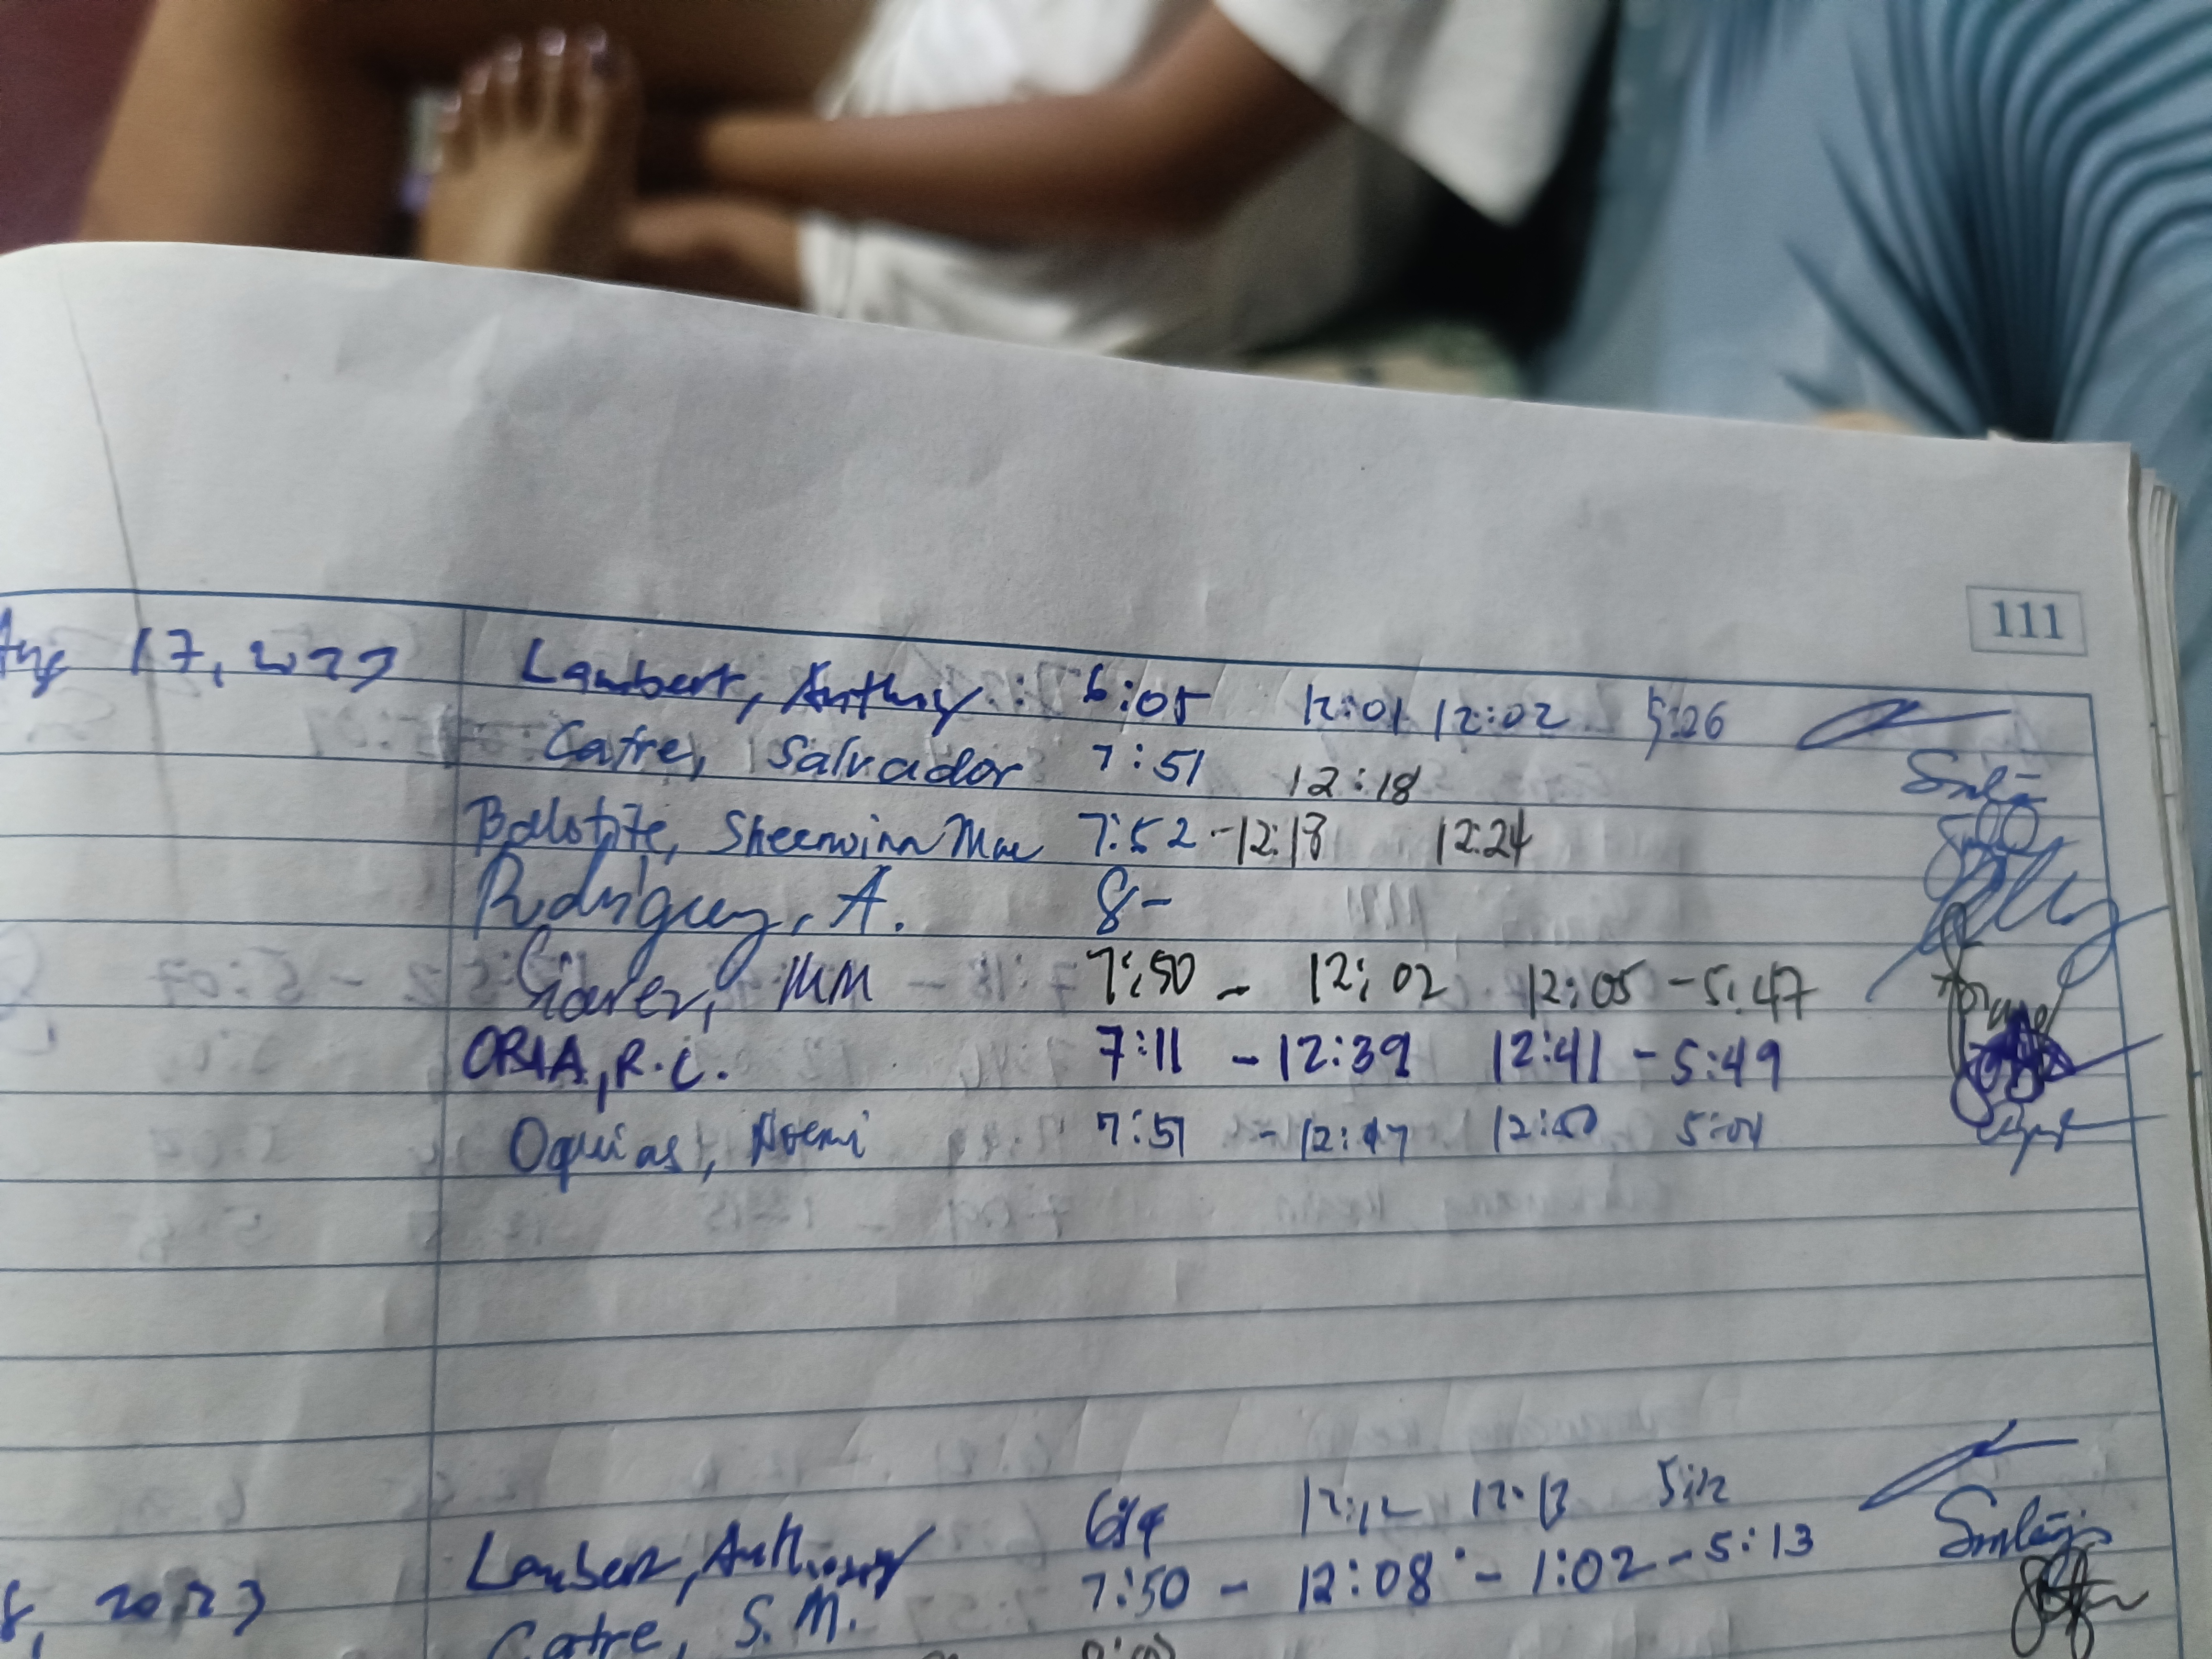 111
Aug 17, 2023 Lambert, Anthony : 6:05 12:01 12:02 5:26
Catre, Salvador 7:51 12:18
Balotite, Sheerwinn Mae 7:52 - 12:18 12:24
Rodriguez, A. 8-
MM 7:50 - 12:02 12:05 - 5:47
ORIA, R.C. 7:11 - 12:39 12:41 - 5:49
Oquias, Noemi 7:51 - 12:47 12:50 5:01
Lambert, Anthony 12:12 12:13 5:12
8, 2023 Catre, S.M. 7:50 - 12:08 - 1:02 - 5:13